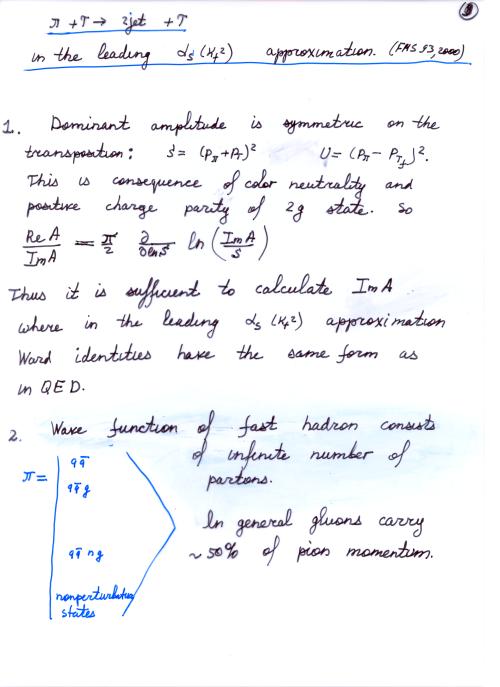 9
π + T → 2jet + T
in the leading αs(κt²) approximation. (FMS 93, 2000)
1. Dominant amplitude is symmetric on the
transposition: s = (Pπ + PT)² U = (Pπ − PTf)².
This is consequence of color neutrality and
positive charge parity of 2g state. So
Re A / Im A = π/2 ∂/∂ln s ln (Im A / s)
Thus it is sufficient to calculate Im A
where in the leading αs(κt²) approximation
Ward identities have the same form as
in QED.
2. Wave function of fast hadron consists
of infinite number of
partons.
π =
qq̄
qq̄g
qq̄ ng
nonperturbative
states
In general gluons carry
~50% of pion momentum.